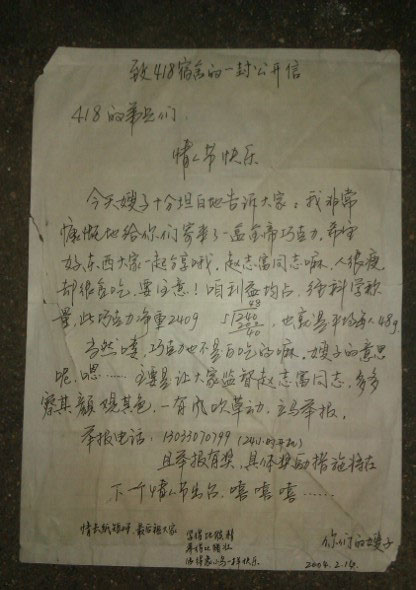 致418宿舍的一封公开信
418的弟兄们,
情人节快乐
今天嫂子十分坦白地告诉大家:我非常
慷慨地给你们寄来了一盒金帝巧克力,希望
好东西大家一起分享哦,赵志富同志嘛,人很瘦,
却很贪吃,要注意!咱利益均占,经科学称
量,此巧克力净重240g
48
5/240
40
,也就是平均每人48g,
当然喽,巧克力也不是白吃的嘛,嫂子的意思
呢,嗯……主要是让大家监督赵志富同志,多多
察其颜观其色,一有风吹草动,立马举报,
举报电话:13033070799(24小时开机)
且举报有奖,具体奖励措施将在
下个情人节出台,嘻嘻嘻……
最后祝大家
你们的嫂子
2004.2.14.